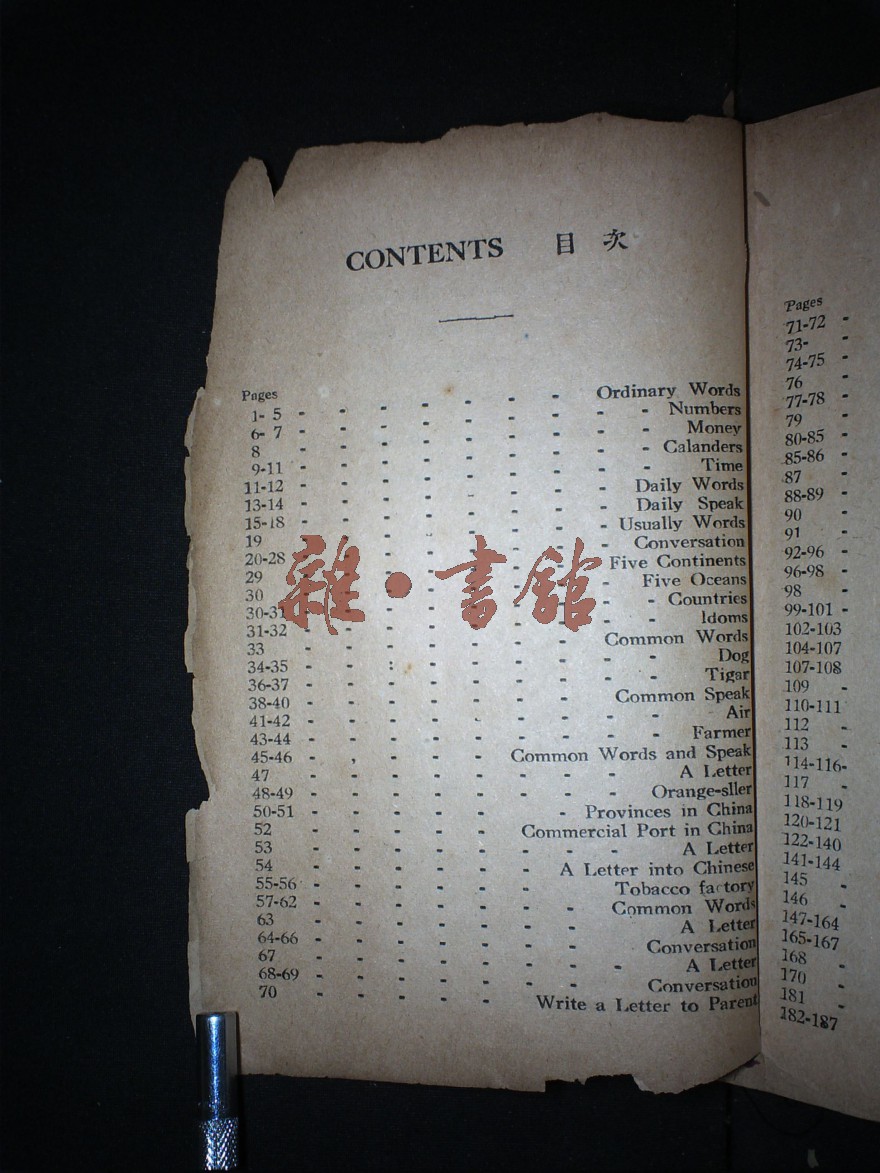 CONTENTS 目次
Pages
1- 5 Ordinary Words
6- 7 Numbers
8 Money
9-11 Calanders
11-12 Time
13-14 Daily Words
15-18 Daily Speak
19 Usually Words
20-28 Conversation
29 Five Continents
30 Five Oceans
30-31 Countries
31-32 Idoms
33 Common Words
34-35 Dog
36-37 Tigar
38-40 Common Speak
41-42 Air
43-44 Farmer
45-46 Common Words and Speak
47 A Letter
48-49 Orange-sller
50-51 Provinces in China
52 Commercial Port in China
53 A Letter
54 A Letter into Chinese
55-56 Tobacco factory
57-62 Common Words
63 A Letter
64-66 Conversation
67 A Letter
68-69 Conversation
70 Write a Letter to Parent
雜·書館
Pages
71-72
73-
74-75
76
77-78
79
80-85
85-86
87
88-89
90
91
92-96
96-98
98
99-101
102-103
104-107
107-108
109
110-111
112
113
114-116
117
118-119
120-121
122-140
141-144
145
146
147-164
165-167
168
170
181
182-187